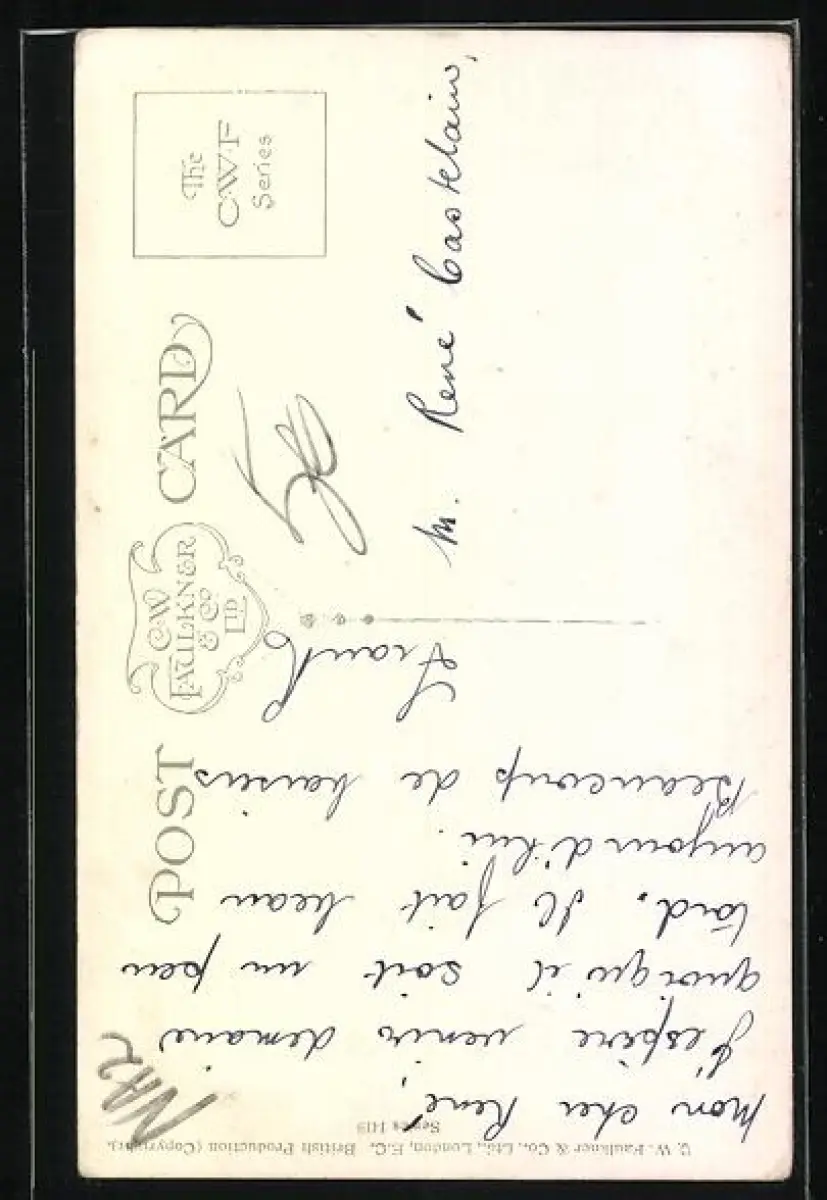 POST CARD
C.W. FAULKNER & Co LTD
The C.W.F Series
Mon cher René,
J'espère venir demain
quoiqu'il soit un peu
tard. Il fait beau
aujourd'hui.
Beaucoup de baisers
Frank
M. René Castelain,
C. W. Faulkner & Co., Ltd., London, E.C. British Production (Copyright).
Series 1419